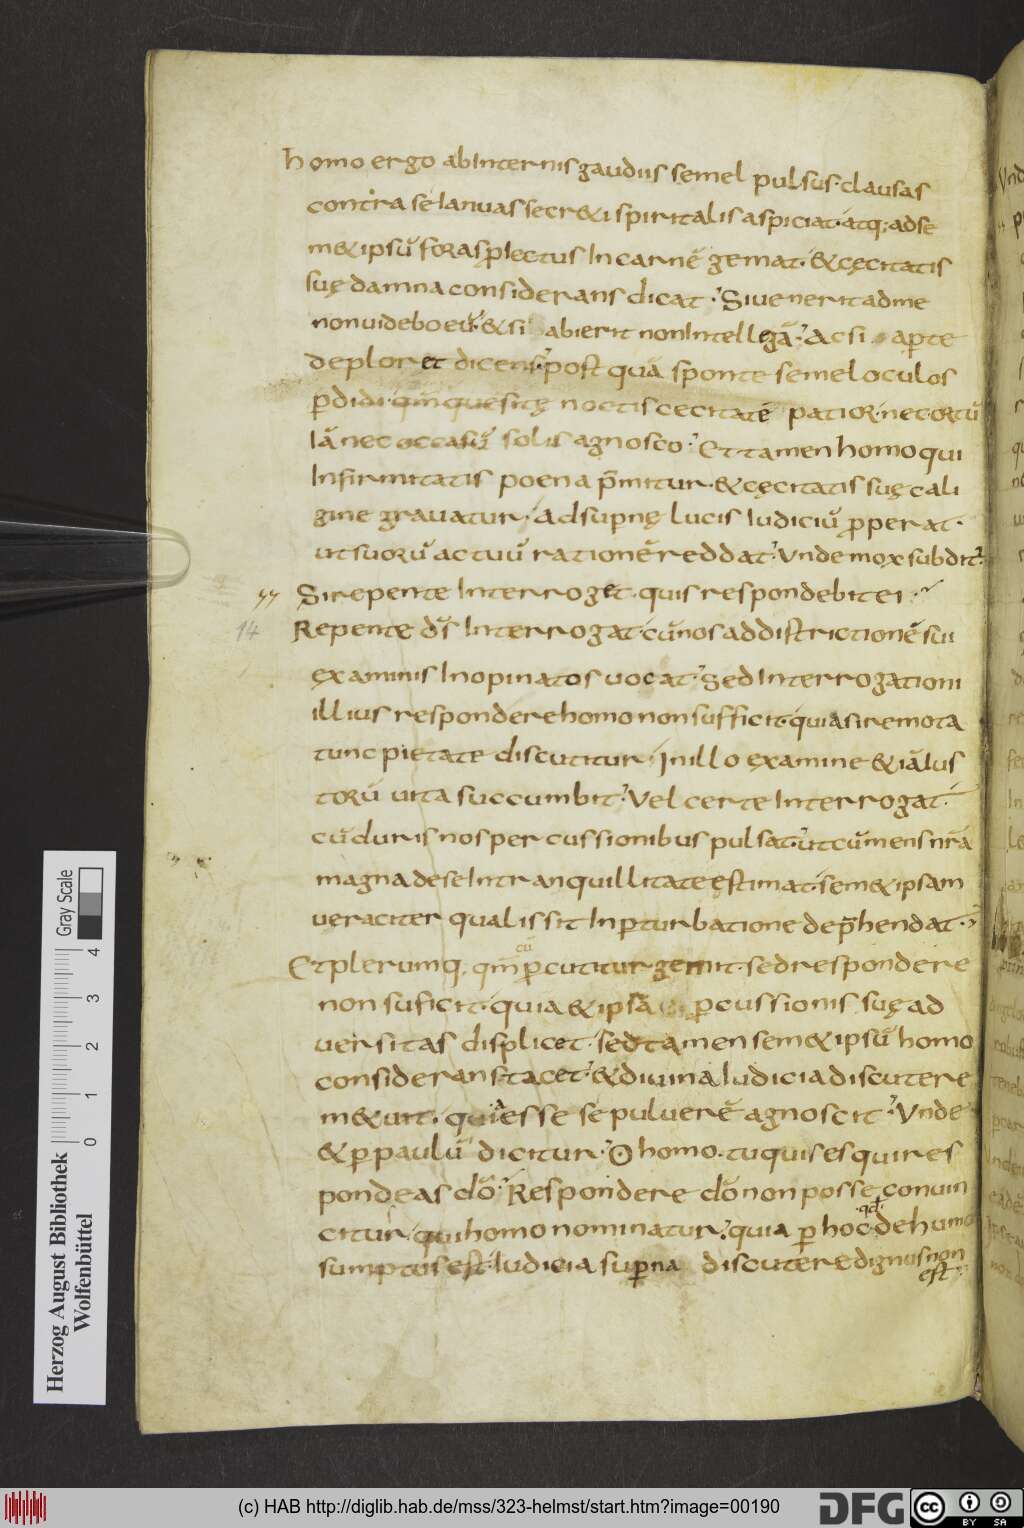 homo ergo abInternis gaudiis semel pulsus· clausas
contra se Ianuas secr&i spiritalis aspiciat· atq; adse
m&ipsū foras ꝓiectus Incarnē gemat· & cęcitatis
suę damna considerans dicat· Si uenerit adme
non uidebo eū· & si abierit non Intellegā· Ac si aꝑte
deploret dicens· post quā sponte semel oculos
ꝑdidi· qm̄ quesitę noctis cecitatē patior· nec ortū
Iā nec occasū solis agnosco· Et tamen homo qui
Infirmitatis poena p̄mitur· & cęcitatis suę cali
gine grauatur· Adsuꝑnę lucis Iudiciū ꝓperat·
ut suorū actuū rationē reddat· Unde mox subdit·
Si repente Interroget· quis respondebit ei·
14 Repente d̄s Interrogat· cū nos addistrictionē sui
examinis Inopinatos uocat· Sed Interrogationi
illius respondere homo non sufficit· quia si remota
tunc pietate discutitur· In illo examine & iā Ius
torū uita succumbit· Vel certe Interrogat·
cū duris nos percussionibus pulsat· ut cū mens nr̄a
magna de se In tranquillitate ęstimat· sem&ipsam
ueraciter qualis sit In ꝑturbatione dep̄hendat·
Et plerumq; qm̄ cū ꝑcutitur gemit· sed respondere
non suficit· quia & ipsā ꝑcussionis suę ad
uersitas displicet· sed tamen sem&ipsū homo
considerans· tacet· & diuina Iudicia discutere
m&uit· qui a esse se puluerē agnoscit· Unde
& ꝑ paulū dicitur· O homo· tu quis es qui res
pondeas dō· Respondere dō non posse conuin
citur qui homo nominatur· quia ꝑ hoc· qd· de humo
sumptus est· Iudicia suꝑna discutere dignus non
est·
Herzog August Bibliothek
Wolfenbüttel
0 1 2 3 4
Gray Scale
(c) HAB http://diglib.hab.de/mss/323-helmst/start.htm?image=00190
DFG
cc BY SA